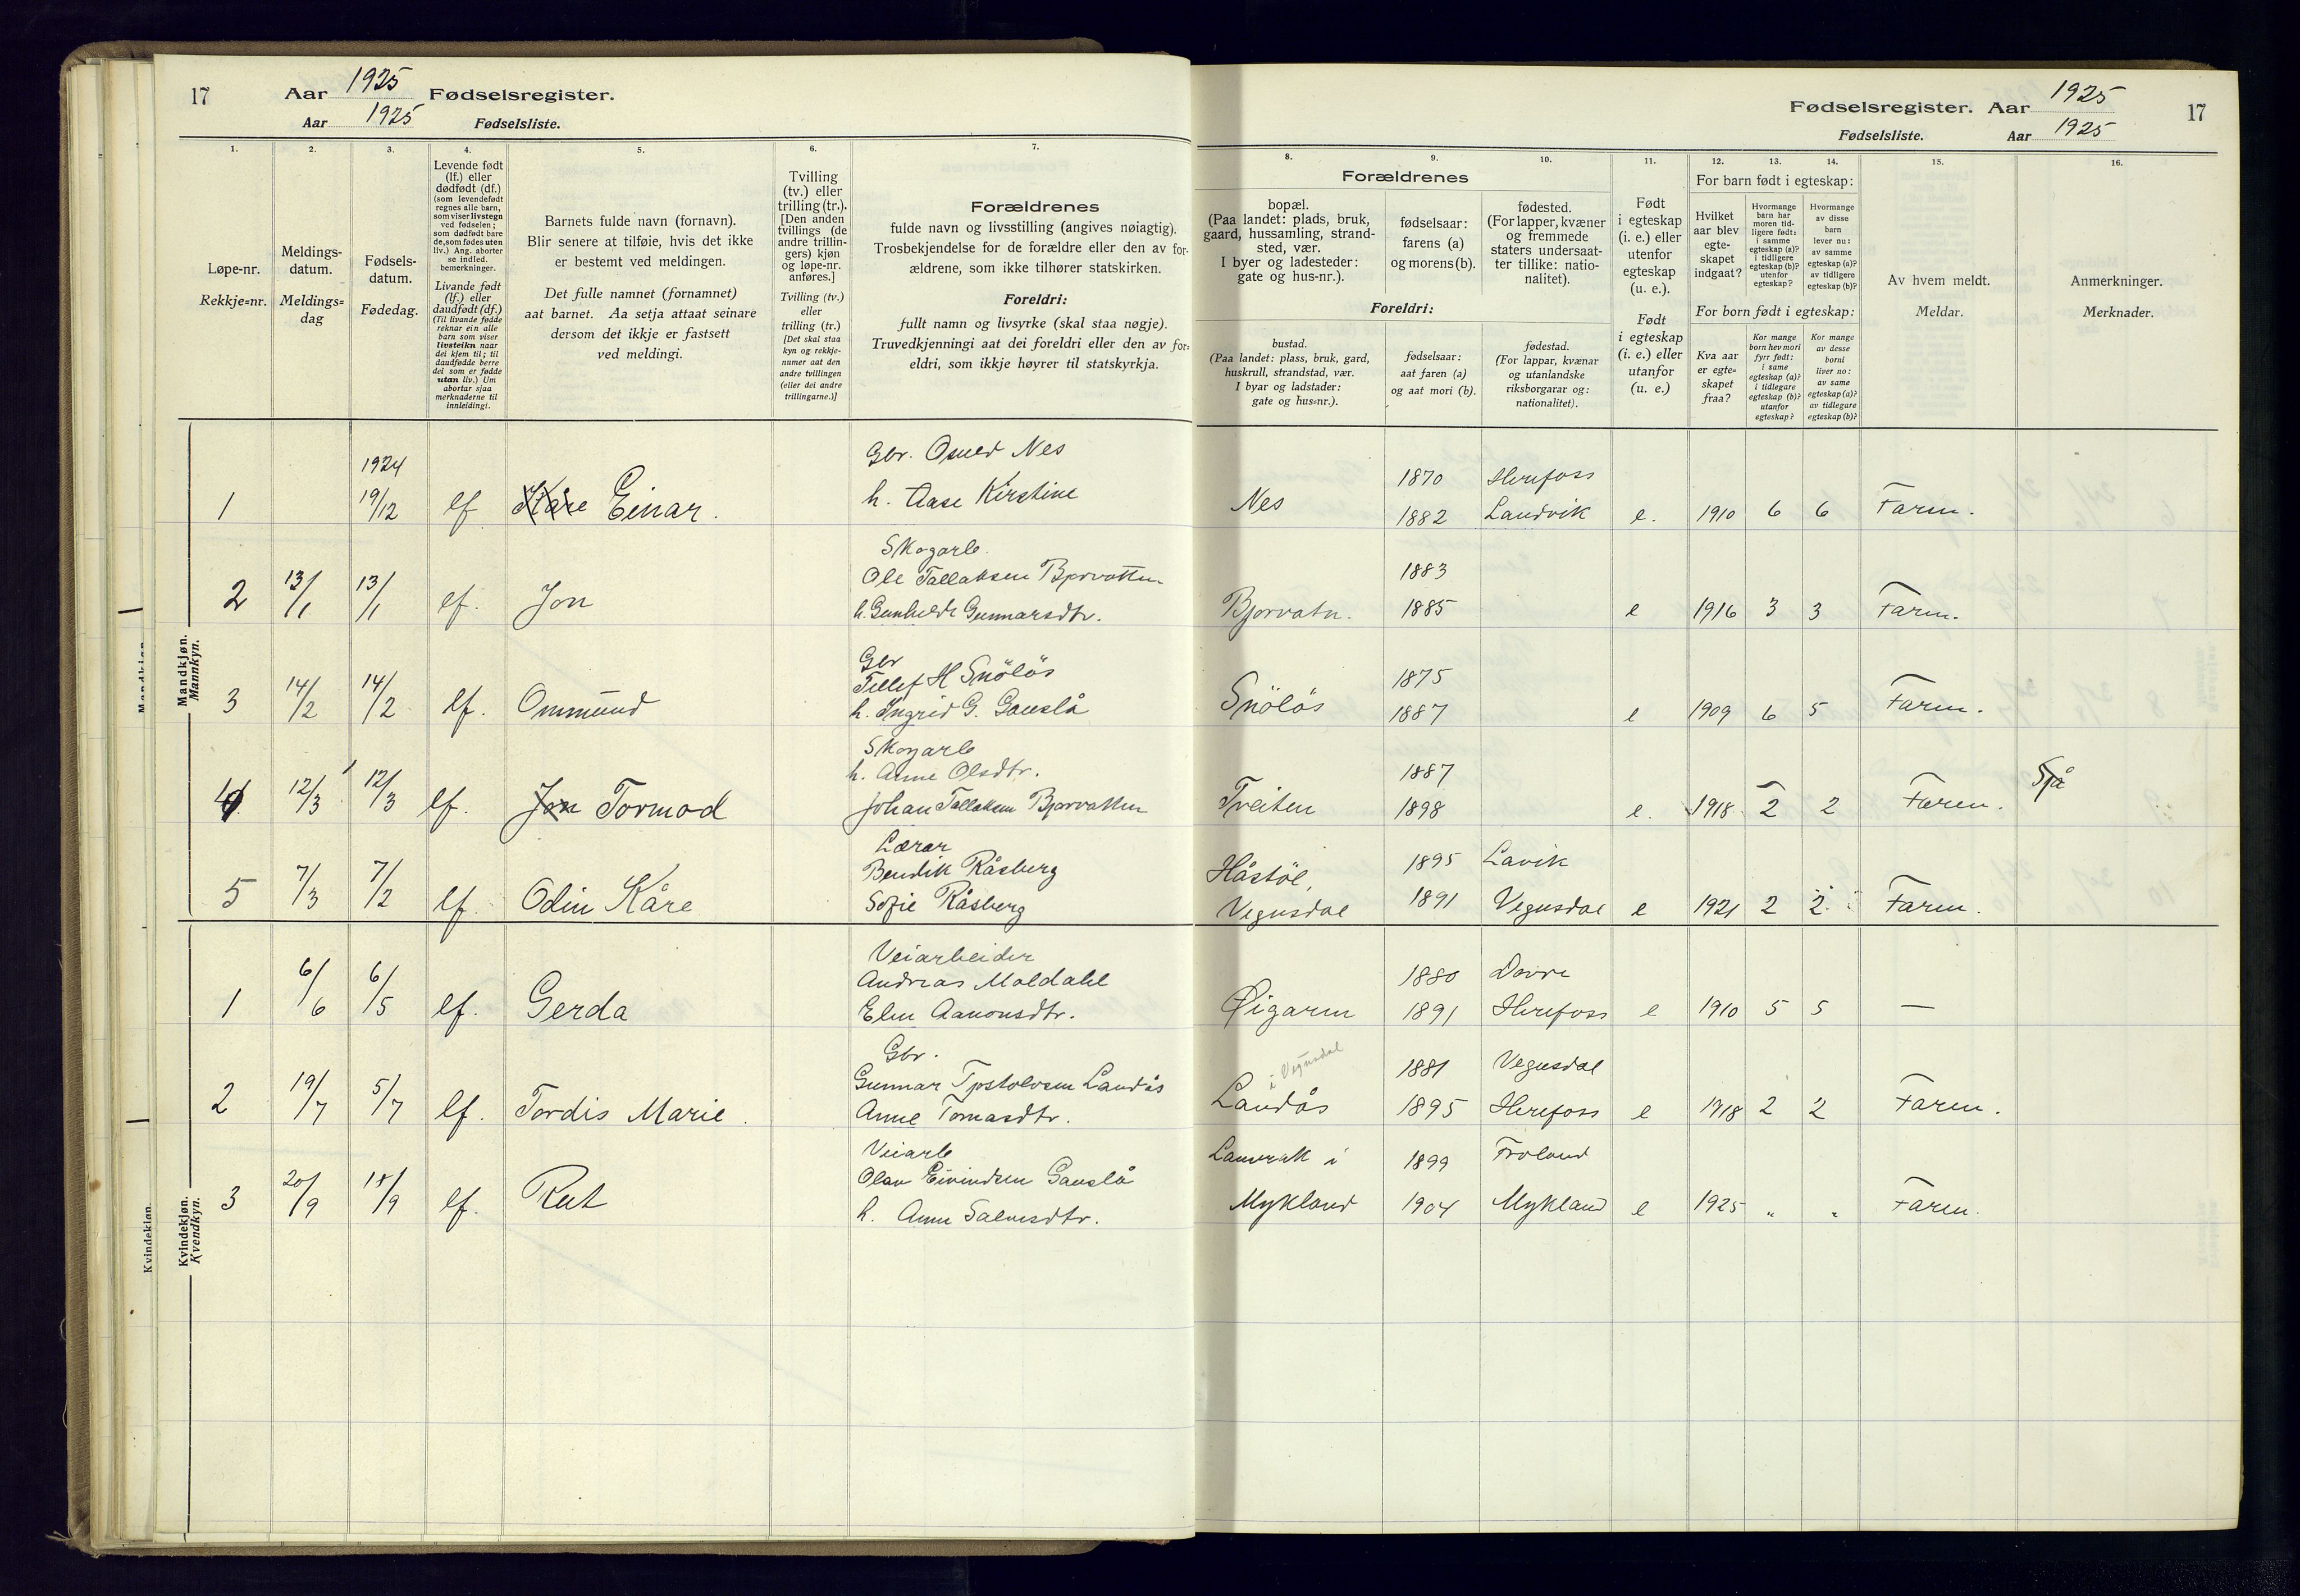 17 Aar 1925 Fødselsregister.
Aar 1925 Fødselsliste.
Fødselsregister. Aar 1925 17
Fødselsliste. Aar 1925
1. 2. 3. 4. 5. 6. 7.
Løpe-nr.
Rekkje=nr.
Meldings-
datum.
Meldings=
dag
Fødsels-
datum.
Fødedag.
Levende født
(lf.) eller
dødfødt (df.)
(som levendefødt
regnes alle barn,
som viser livstegn
ved fødselen;
som dødfødt bare
de, som fødes uten
liv.) Ang. aborter
se indled.
bemerkninger.
Livande født
(lf.) eller
daudfødt (df.)
(Til livande fødde
reknar ein alle
barn som viser
livsteikn naar
dei kjem til; til
daudfødde berre
dei som er fødde
utan liv.) Um
abortar sjaa
merknaderne til
innleidingi.
Barnets fulde navn (fornavn).
Blir senere at tilføie, hvis det ikke
er bestemt ved meldingen.
Det fulle namnet (fornamnet)
aat barnet. Aa setja attaat seinare
dersom det ikkje er fastsett
ved meldingi.
Tvilling
(tv.) eller
trilling (tr.).
[Den anden
tvillings (de
andre trillin-
gers) kjøn
og løpe-nr.
anføres.]
Tvilling (tv.)
eller
trilling (tr.)
[Det skal staa
kyn og rekkje-
numer aat den
andre tvillingen
(eller dei andre
trillingarne.)]
Forældrenes
fulde navn og livsstilling (angives nøiagtig).
Trosbekjendelse for de forældre eller den av for-
ældrene, som ikke tilhører statskirken.
Foreldri:
fullt namn og livsyrke (skal staa nøgje).
Truvedkjenningi aat dei foreldri eller den av for=
eldri, som ikkje høyrer til statskyrkja.
8. 9. 10. 11. 12. 13. 14. 15. 16.
Forældrenes
bopæl.
(Paa landet: plads, bruk,
gaard, hussamling, strand-
sted, vær.
I byer og ladesteder:
gate og hus-nr.).
fødselsaar:
farens (a)
og morens (b).
fødested.
(For lapper, kvæner
og fremmede
staters undersaat-
ter tillike: natio-
nalitet).
Foreldri:
bustad.
(Paa landet: plass, bruk, gard,
huskrull, strandstad, vær.
I byar og ladstader:
gate og hus=nr.).
fødselsaar:
aat faren (a)
og aat mori (b).
fødestad.
(For lappar, kvænar
og utanlandske
riksborgarar og:
nationalitet).
Født
i egteskap
(i. e.) eller
utenfor
egteskap
(u. e.).
Født
i egteskap
(i. e.) eller
utanfor
(u. e.)
For barn født i egteskap:
Hvilket
aar blev
egte-
skapet
indgaat?
Hvormange
barn har
moren tid-
ligere født:
i samme
egteskap (a)?
i tidligere
egteskap (b)?
utenfor
egteskap?
Hvormange
av disse
barn
lever nu:
av samme
egteskap (a)?
av tidligere
egteskap (b)?
For born født i egteskap:
Kva aar
er egte=
skapet
fraa?
Kor mange
born hev mori
fyrr født:
i same
egteskap (a)?
i tidlegare
egteskap (b)?
utanfor
egteskap?
Kor mange
av desse
borni
liver no:
av same
egteskap (a)?
av tidlegare
egteskap (b)?
Av hvem meldt.
Meldar.
Anmerkninger.
Merknader.
Mandkjøn.
Mannkyn.
1 1924 19/12 lf Kåre Einar. Gbr. Nes
h. Aase Kirstine
Nes 1870 Herefoss
1882 Landvik e. 1910 6 6 Faren.
2 13/1 13/1 lf. Jon Skogarb.
Ole Tallaksen Bjorvatten
h. Gunhild Gunnarsdtr.
Bjorvatn. 1883
1885 e 1916 3 3 Faren.
3 14/2 14/2 lf. Ommund Gbr
Tellef H Snölös
h. Ingrid G. Gauslå
Snölös 1875
1887 e 1909 6 5 Faren.
4 12/3 12/3 lf. Jon Tormod Skogarb
h. Anne Olsdtr.
Johan Tallaksen Bjorvatten
Treiten 1887
1898 e. 1918 2 2 Faren. Sjå
5 7/3 7/2 lf. Odin Kåre Lærar
Bendik Råsberg
Sofie Råsberg
Håstöl, 1895 Lavik
Vegusdal 1891 Vegusdal e 1921 2 2 Faren.
Kvindekjøn.
Kvendkyn.
1 6/6 6/5 lf. Gerda Veiarbeider
Andreas Moldahl
Elen Aanonsdtr.
Øigaren 1880 Dovre
1891 Herefoss e 1910 5 5 —
2 19/7 5/7 lf. Tordis Marie. Gbr.
Gunnar Tjostolvsen Landås
Anne Tomasdtr.
i Vegusdal
Landås 1881 Vegusdal
1895 Herefoss e 1918 2 2 Faren.
3 20/9 18/9 lf. Rut Veiarb
Olav Eivindsen Gauslå
h. Anne Salvesdtr.
i 1899 Froland
Mykland 1904 Mykland e 1925 " " Faren.
Mandkjøn
Kvindekjøn.